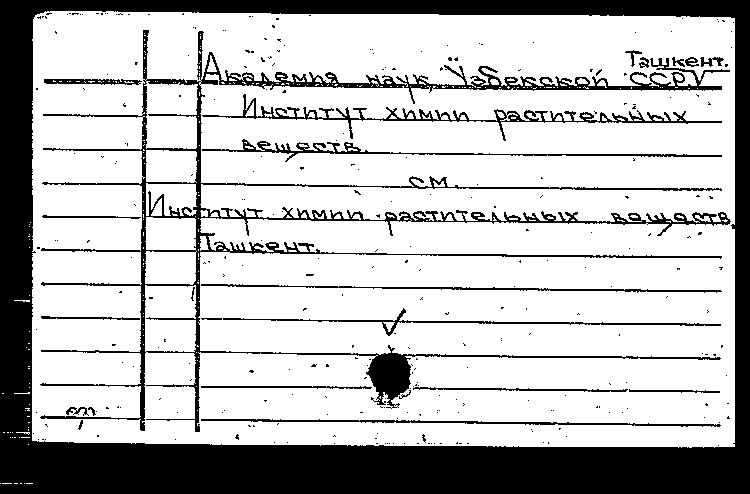 Ташкент.
Академия наук Узбекской ССР
Институт химии растительных
веществ.
см.
Институт химии растительных веществ
Ташкент.